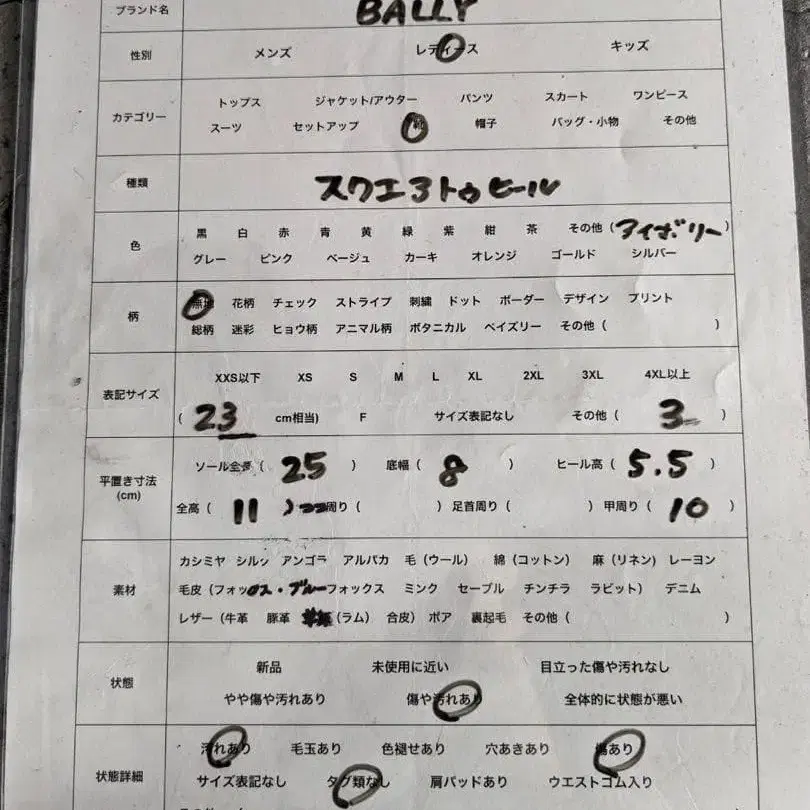 ブランド名 BALLY
性別 メンズ レディース キッズ
カテゴリー
トップス ジャケット/アウター パンツ スカート ワンピース
スーツ セットアップ 帽子 バッグ・小物 その他
種類 スクエアトゥヒール
色
黒 白 赤 青 黄 緑 紫 紺 茶 その他 (アイボリー)
グレー ピンク ベージュ カーキ オレンジ ゴールド シルバー
柄
無地 花柄 チェック ストライプ 刺繍 ドット ボーダー デザイン プリント
総柄 迷彩 ヒョウ柄 アニマル柄 ボタニカル ペイズリー その他 ( )
表記サイズ
XXS以下 XS S M L XL 2XL 3XL 4XL以上
( 23 cm相当) F サイズ表記なし その他 ( 3 )
平置き寸法
(cm)
ソール全長 ( 25 ) 底幅 ( 8 ) ヒール高 ( 5.5 )
全高 ( 11 ) 周り ( ) 足首周り ( ) 甲周り ( 10 )
素材
カシミヤ シルク アンゴラ アルパカ 毛 (ウール) 綿 (コットン) 麻 (リネン) レーヨン
毛皮 (フォックス・ブルーフォックス ミンク セーブル チンチラ ラビット) デニム
レザー (牛革 豚革 (ラム) 合皮) ボア 裏起毛 その他 ( )
状態
新品 未使用に近い 目立った傷や汚れなし
やや傷や汚れあり 傷や汚れあり 全体的に状態が悪い
状態詳細
汚れあり 毛玉あり 色褪せあり 穴あきあり 傷あり
サイズ表記なし タグ類なし 肩パッドあり ウエストゴム入り